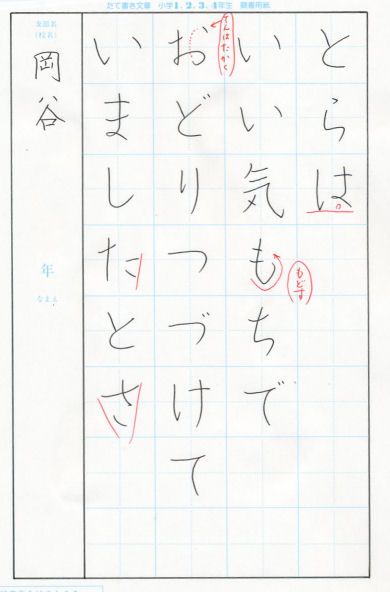 たて書き文章 小学1.2.3.4年生 競書用紙
とらは
いい気もちで
おどりつづけて
いましたとさ
てんはたかく
もどす
支部名
(校名)
岡谷
年
なまえ